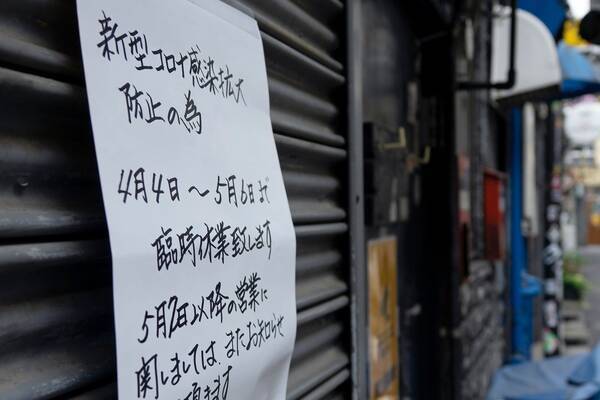 新型コロナ感染拡大
防止の為
4月4日～5月6日まで
臨時休業致します
5月7日以降の営業に
関しましては、またお知らせ
頂きます